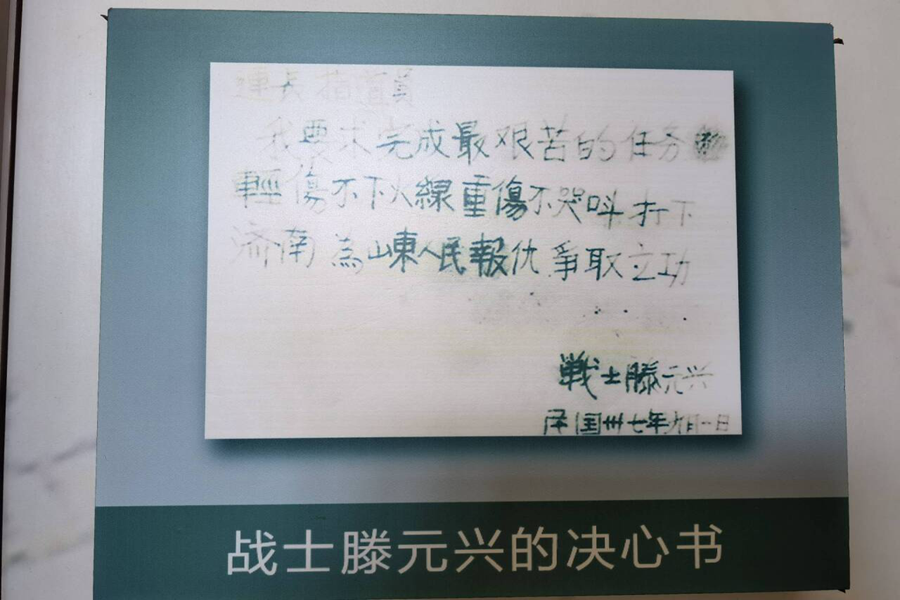 連长 指道員
我要求完成最艰苦的任务
輕傷不下火線重傷不哭叫打下
济南為山東人民報仇爭取立功
戦士滕元兴
民国卅七年九月一日
战士滕元兴的决心书